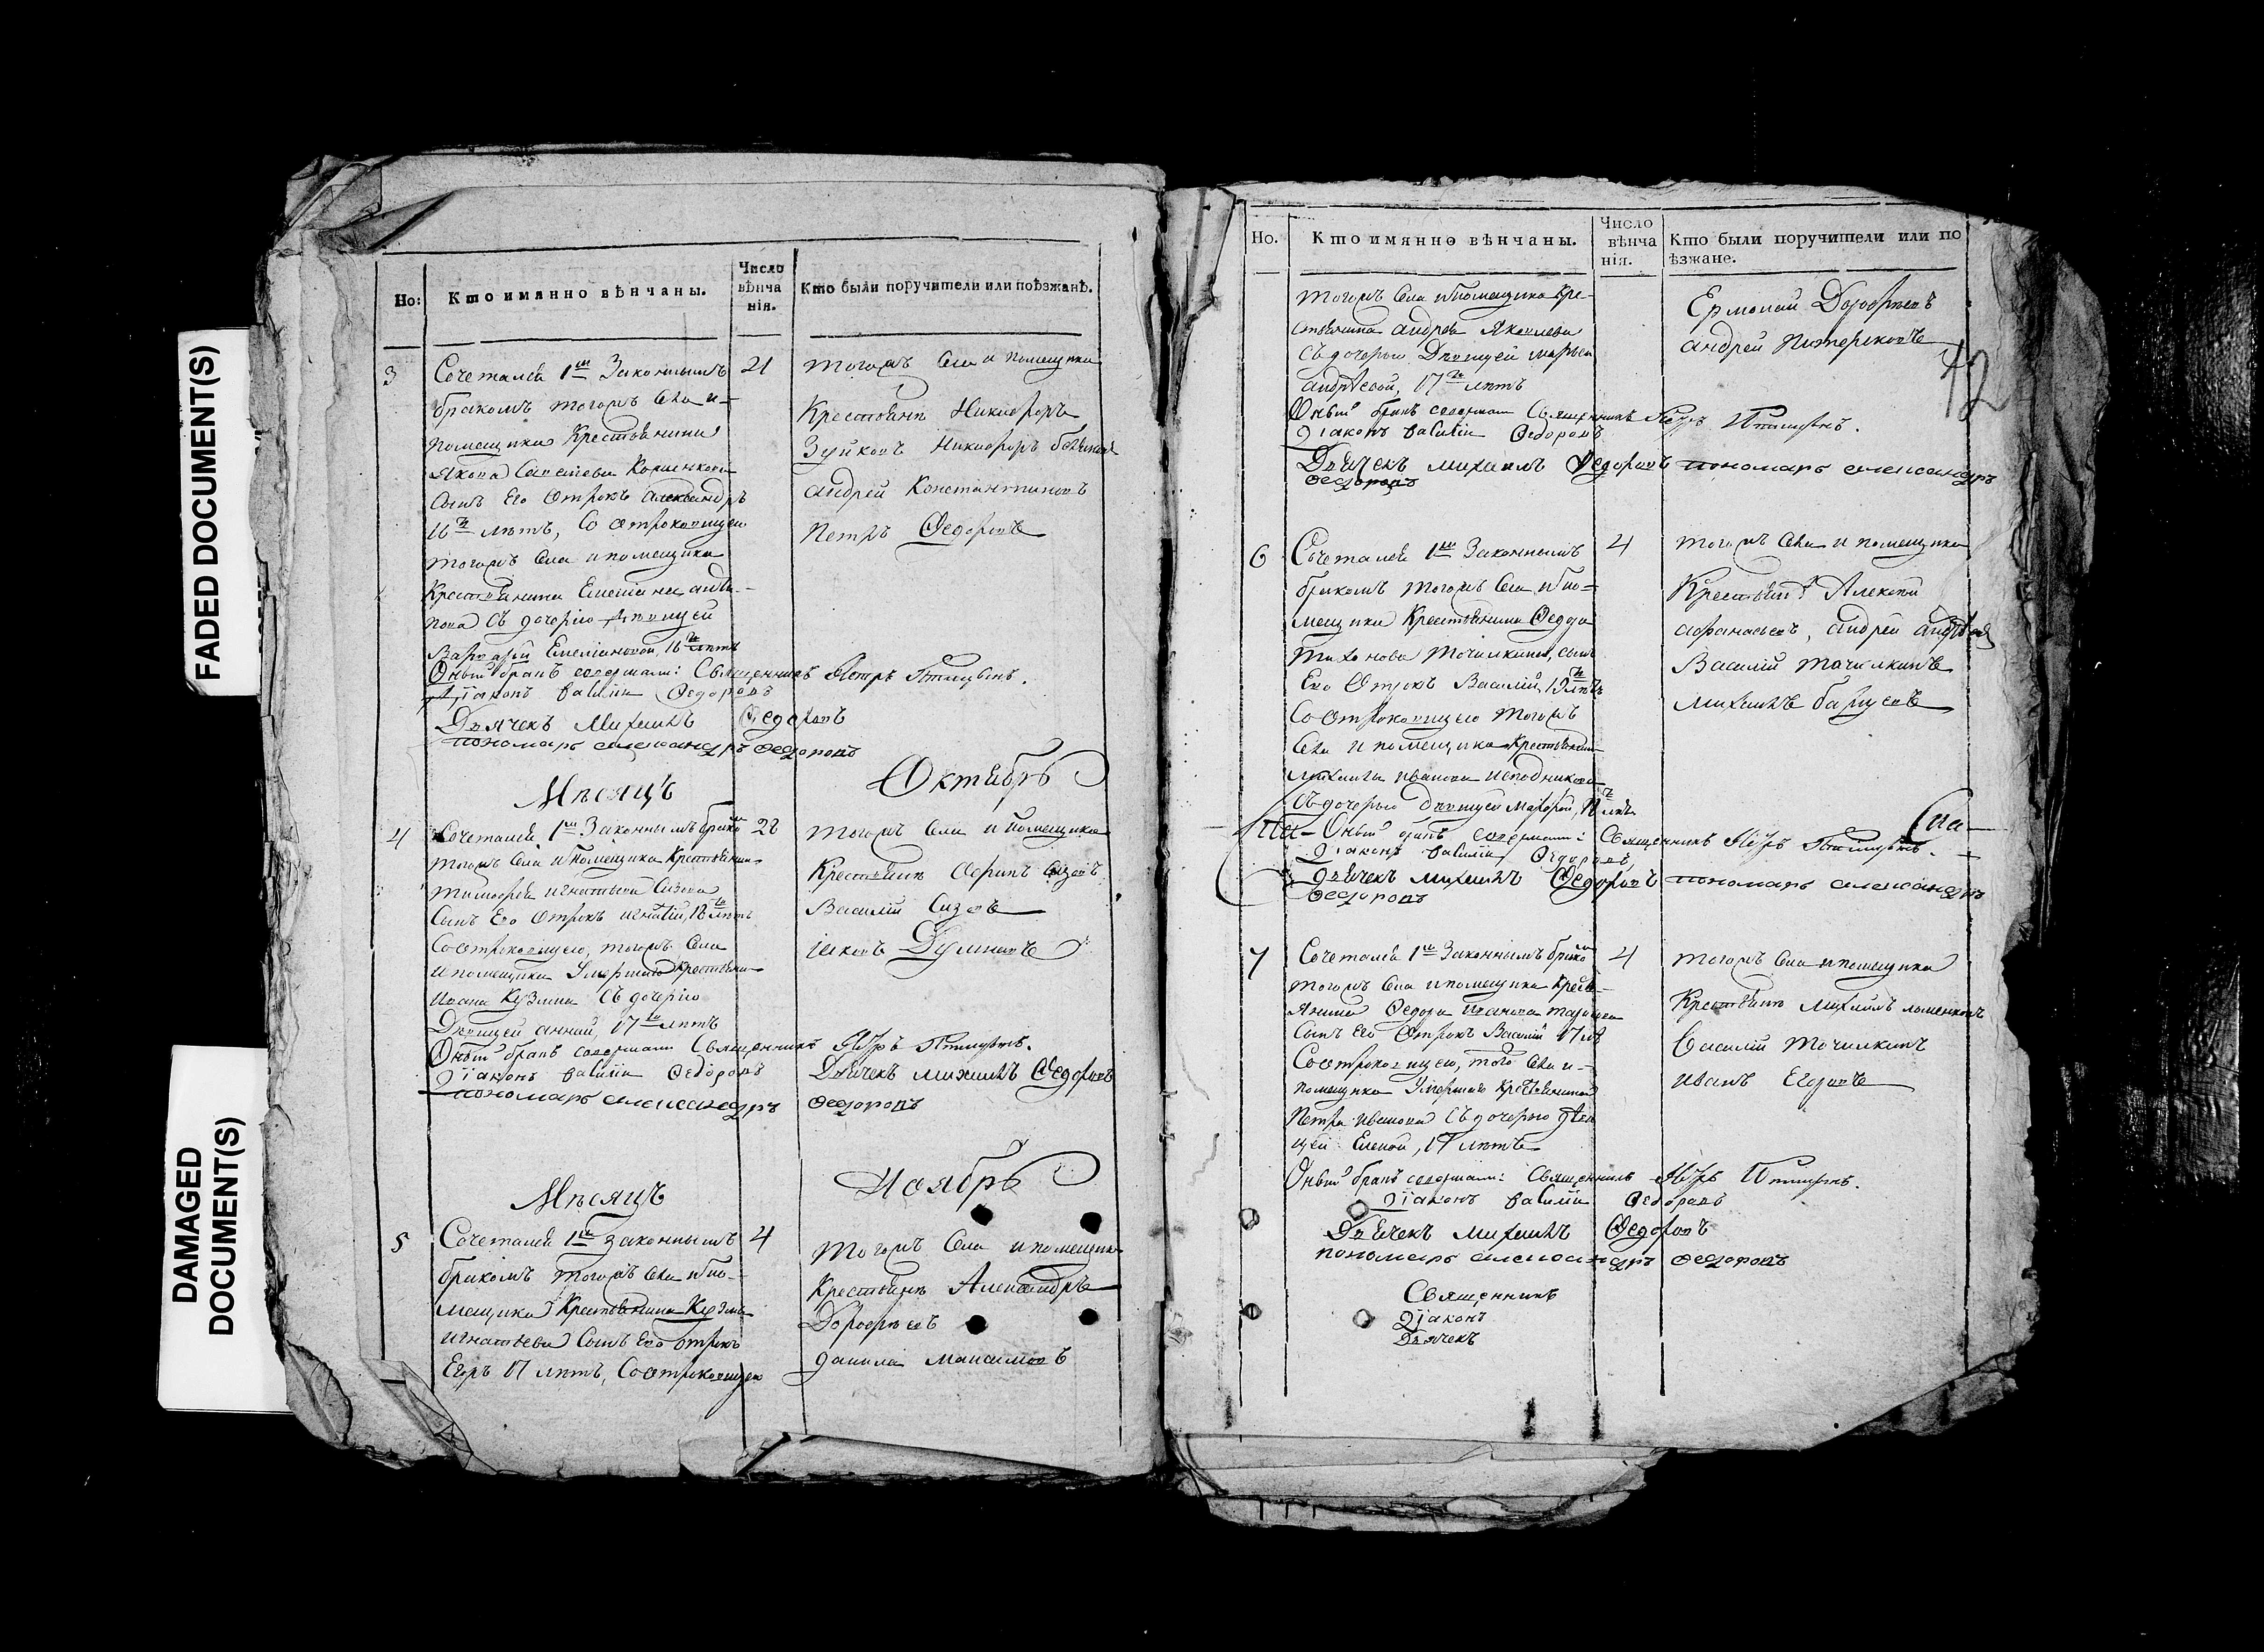 FADED DOCUMENT(S)
DAMAGED
DOCUMENT(S)
Но:
Кто имянно вѣнчаны.
Число
вѣнча
нія.
Кто были поручители или поѣзжанѣ.
3
Сочетался 1м Законнымъ
бракомъ тогожъ Села и
помещика Крестьянина
Якова
Сынъ Его Отрокъ Александръ
16ти лѣтъ, Со отроковицею
тогожъ Села и помещика
Крестьянина Емельяна
съ дочерію Девицей
Варварой Емельяновой, 16ти лѣтъ
21
тогожъ Села и помещика
Крестьяни Никифоръ
Зуйковъ Никифоръ
андрей Константиновъ
Петръ Федоровъ
Оный бракъ содержали: Священникъ Петръ
Діаконъ Василій Федоровъ
Дьячекъ Михаилъ Федоровъ
пономарь александръ федоровъ
Мѣсяцъ Октябрь
4
Сочетался 1м Законнымъ бракомъ
тогожъ Села и помещика Крестьянин
тимофея игнатьева Сизова
Сынъ Его Отрокъ игнатій, 18ти лѣтъ
Со отроковицею, тогожъ Села
и помещика Умершаго Крестьяни
Ивана Кузмина Съ дочерію
Девицей анной, 17ти лѣтъ
28
тогожъ Села и помещика
Крестьяни Сизовъ
Василій Сизовъ
Яковъ
Оный бракъ содержали Священникъ Петръ
Діаконъ Василій Федоровъ Дьячекъ михаилъ Федоровъ
пономарь александръ федоровъ
Мѣсяцъ Ноябрь
5
Сочетался 1м законнымъ
бракомъ тогожъ Села и по-
мещика Крестьянина Кузмы
игнатьева Сынъ Его отрокъ
Егоръ 17 лѣтъ, Со отроковицею
4
тогожъ Села и помещика
Крестьяни Александръ
Дорофѣевъ
данила максимовъ
Но.
Кто имянно вѣнчаны.
Число
вѣнча
нія.
Кто были поручители или по
ѣзжане.
тогожъ Села и помещика Кре-
стьянина андрея Яковлева
Съ дочерью Девицей марьей
андрѣевой, 17ти лѣтъ
Ермолай Дорофѣевъ
андрей
42
Оный бракъ содержали Священникъ Петръ
Діаконъ Василій Федоровъ
Дьячекъ михаилъ Федоровъ пономарь александръ
федоровъ
6
Сочетался 1м Законнымъ
бракомъ тогожъ Села и по-
мещика Крестьянина Федора
Тихонова Точилкина, сынъ
Его Отрокъ Василій, 19ти лѣтъ
Со отроковицею тогожъ
Села и помещика Крестьянин
Михаила иванова
Съ дочерью Девицей Марфой, 18 лѣтъ
4
тогожъ Села и помещика
Крестьяни Алексѣй
афанасьевъ, андрей
Василій точилкинъ
михаилъ
Оный бракъ содержали: Священникъ Петръ
Діаконъ Василій Федоровъ
дьячекъ михаилъ Федоровъ пономарь александръ
федоровъ
7
Сочетался 1м Законнымъ бракомъ
тогожъ Села и помещика Кресть-
янина Федора Иванова
Сынъ Его Отрокъ Василій 17 лѣ
Со отроковицею, того Села и
помещика Умершаго Крестьянина
Петра иванова Съ дочерью деви
цей Еленой, 17 лѣтъ
4
тогожъ Села и помещика
Крестьяни Михаилъ
Василій Точилкинъ
иванъ Егоровъ
Оный бракъ содержали: Священникъ Петръ
Діаконъ Василій Федоровъ
Дьячекъ михаилъ Федоровъ
пономарь александръ федоровъ
Священникъ
Діаконъ
Дьячекъ